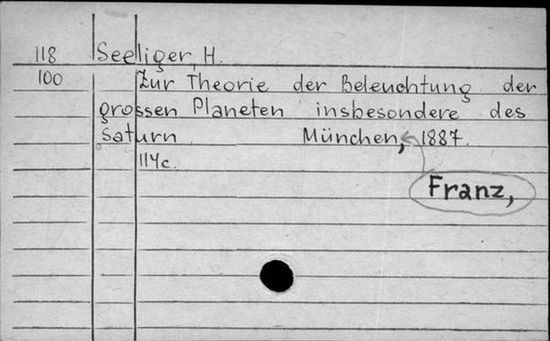 118 Seeliger, H.
100 Zur Theorie der Beleuchtung der
grossen Planeten insbesondere des
Saturn München, 1887.
114c.
Franz,